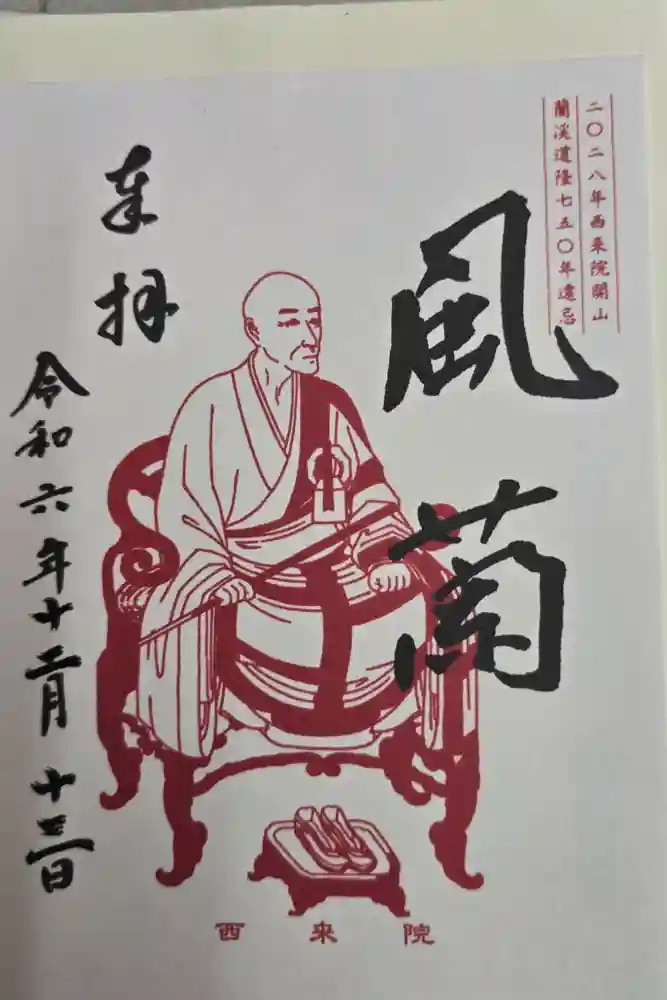 二〇二八年西来院開山
蘭渓道隆七五〇年遠忌
風蘭
奉拝
令和六年十二月十三日
西来院